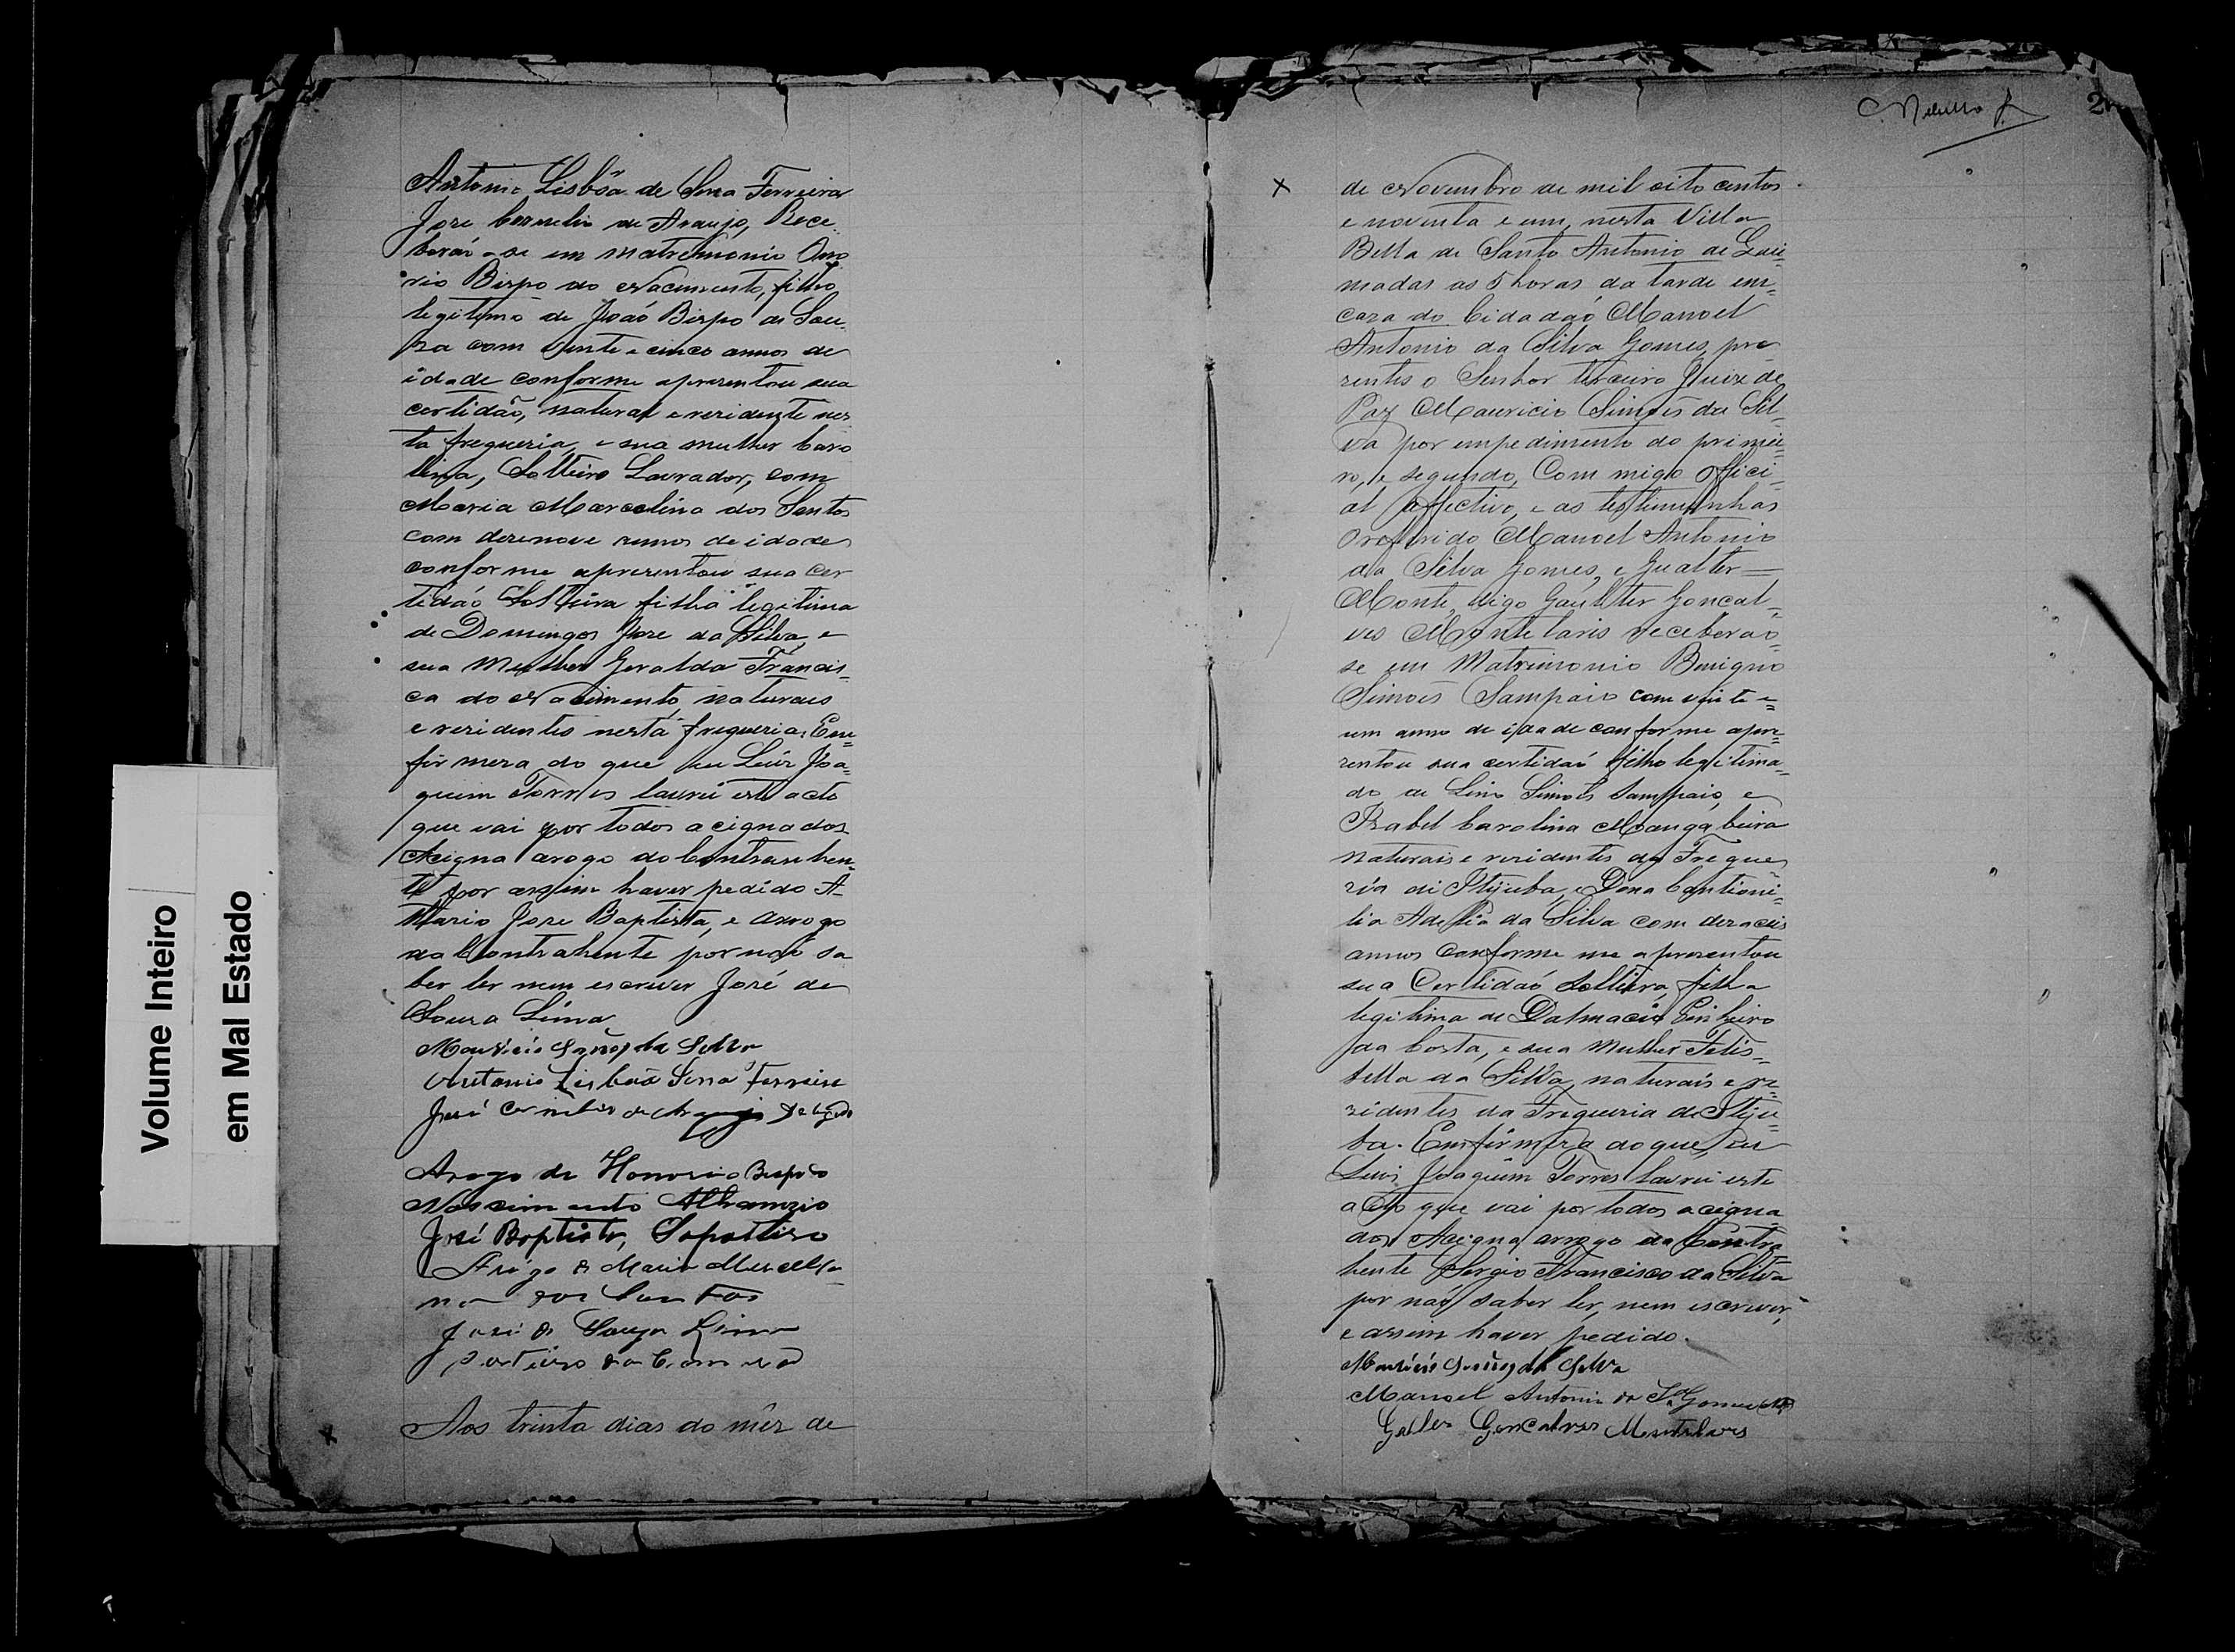 Volume Inteiro
em Mal Estado
Antonio Lisbôa de Sena Ferreira
Jose Cornelio de Araujo, Rece
berão-se em matrimonio Ono
rio Bispo do Nacimento, filho
legitimo de João Bispo de Sou
za com vinte e cinco annos de
idade conforme aprezentou sua
certidão, natural e rezidente nes
ta fregueria, e sua mulher Caro
lina, Solteiro Lavrador, com
Maria Marcolina dos Santos
com dezenove annos de idade
conforme aprezentou sua cer
tidão Solteira filha legitima
de Domingos Jose da Silva, e
sua Mulher Geralda Francis_
ca do Nacimento, naturaes
e rezidentes nesta fregueria. Em=
firmeza do que eu Luiz Joa=
quim Torres lavrei este acto
que vai por todos acignados
Acigna arogo do Contranhen=
te por assim haver pedido A_
tanario Jose Baptista, e arrogo
da Contrahente por não sa
ber ler nem escrever José de
Souza Lima
Mauricio Simões da Silva
Antonio Lisbôa Sena Ferreira
José Cornelio de Araujo
Arogo de Honorio Bispo do
Nascimento Athanazio
José Baptista, Sapatteiro
Arôgo de Maria Marcelli
na dos Santos
José de Souza Lima
porteiro da Camara
x Aos trinta dias do mêz de
2
x de Novembro de mil oito centos
e noventa e um, nesta Villa
Bella de Santo Antonio de Quei
madas as 5 horas da tarde em=
caza do Cidadão Manoel
Antonio da Silva Gomes, pre
zentes o Senhor terceiro Juiz de
Paz Mauricio Simões da Sil_
va por empedimento do primei=
ro, e segundo, Com migo Offici_
al effectivo, e as testimunhas
O referido Manoel Antonio
da Silva Gomes, e Gualter=
Monte, digo Gaulter Goncal_
ves Montelaris receberão=
se em Matrimonio Benigno
Simoes Sampaio com vinte e=
um anno de idade conforme apre=
zentou sua certidaó filho legitima_
do de Lino Simoes Sampaio, e
Izabel Carolina Mangabeira
naturais e rezidentes da Fregue
zia de Itiuba, e Dona Cantioni=
lia Adelia da Silva com dezaceis
annos Conforme me aprezentou
sua Certidaó Solteira, filha
legitima de Dalmacio Pinheiro
da Costa, e sua Mulher Felis_
bella da Silva, naturais e re=
zidentes da Fregueria de Itiu_
ba. Em firmeza do que, eu
Luis Joaquim Torres lavrei este
acto que vai por todos acigna
dos Acigna arrogo da Contra
hente Sergio Francisco da Silva
por naó saber ler, nem escrever,
e assim haver pedido.
Mauricio Simões da Silva
Manoel Antonio da Sa Gomes
Galter Goncalves Montelares